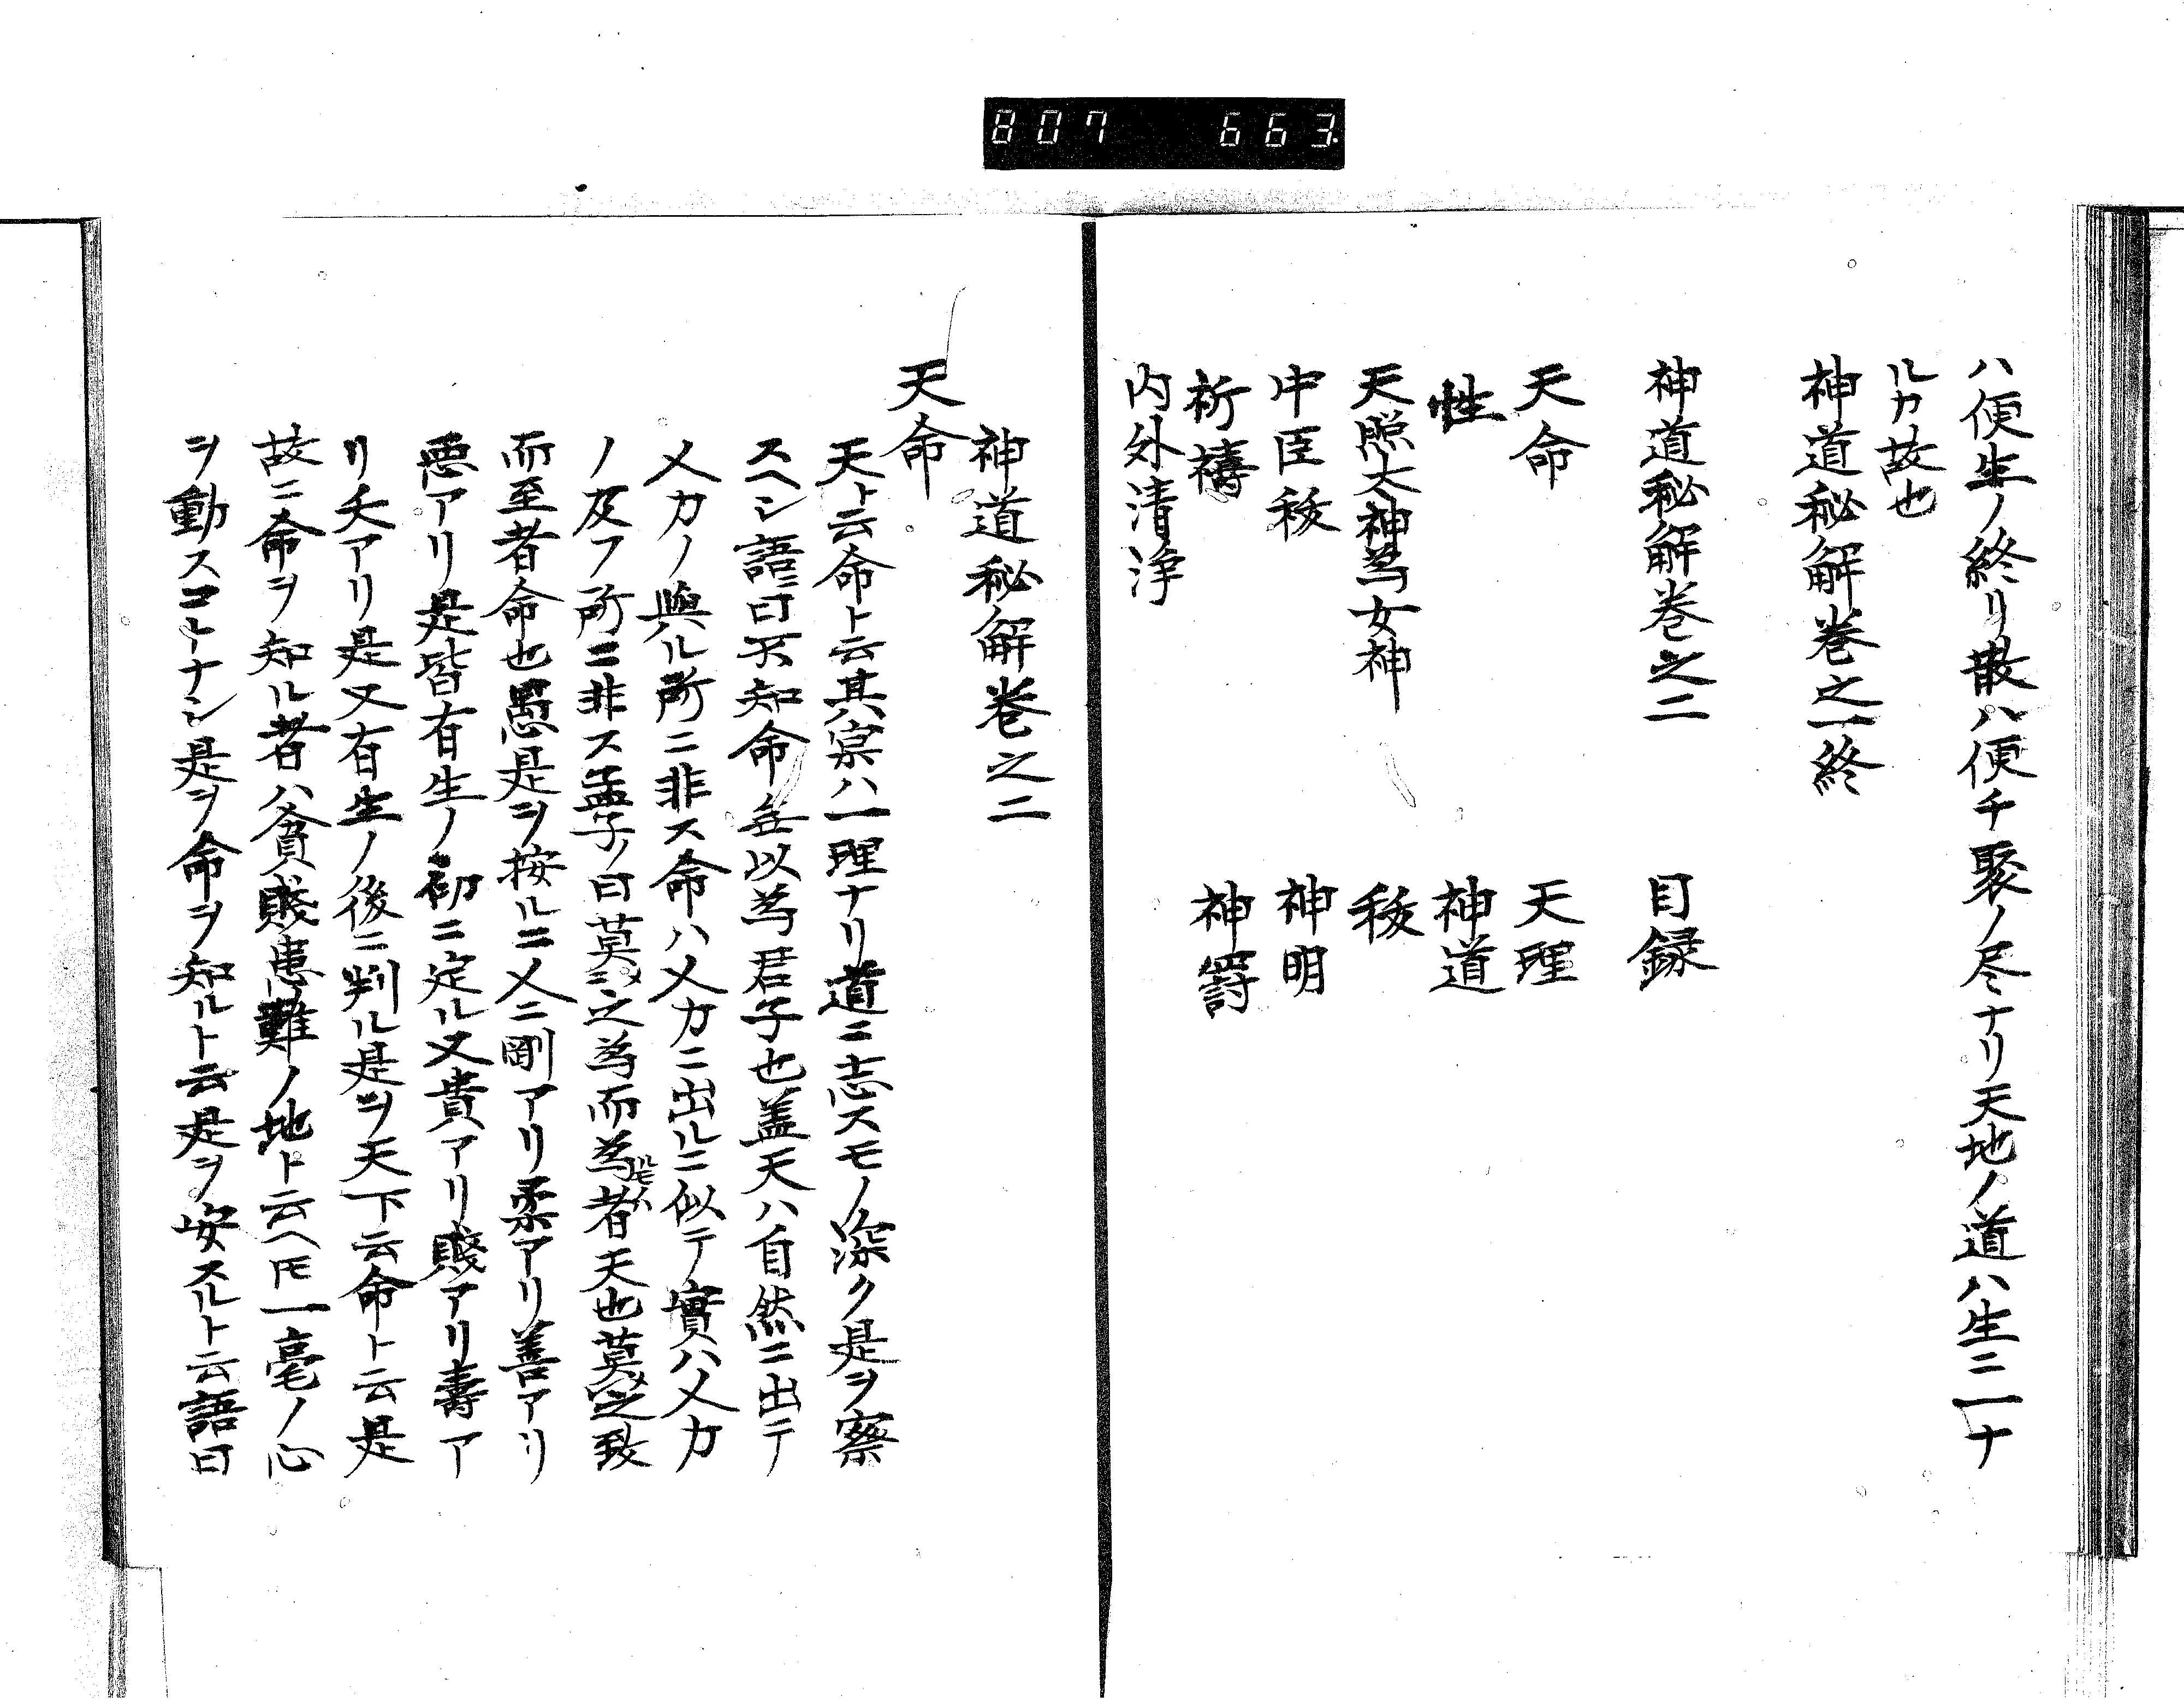 807 663
ハ便生ノ終リ散ハ便チ聚ノ尽ナリ天地ノ道ハ生ニ一ナ
ルカ故也
神道秘解巻之一終
神道秘解巻之二 目録
天命 天理
性 神道
天照大神為女神 秡
中臣秡 神明
祈禱 神罸
内外清浄
神道秘解巻之二
天命
天ト云命ト云其実ハ一理ナリ道ニ志スモノ深ク是ヲ察
スヘシ語ニ曰不知命無以為君子也蓋天ハ自然ニ出テ
人力ノ與ル所ニ非ス命ハ人力ニ出ルニ似テ實ハ人力
ノ及フ所ニ非ス孟子ノ曰莫之為而為者天也莫之致
而至者命也愚是ヲ按ルニ人ニ剛アリ柔アリ善アリ
悪アリ是皆有生ノ初ニ定ル又貴アリ賤アリ壽ア
リ夭アリ是又有生ノ後ニ判ル是ヲ天下云命ト云是
故ニ命ヲ知ル者ハ貧賤患難ノ地ト云ヘ𪜈一毫ノ心
ヲ動スコトナシ是ヲ命ヲ知ルト云是ヲ安スルト云語曰